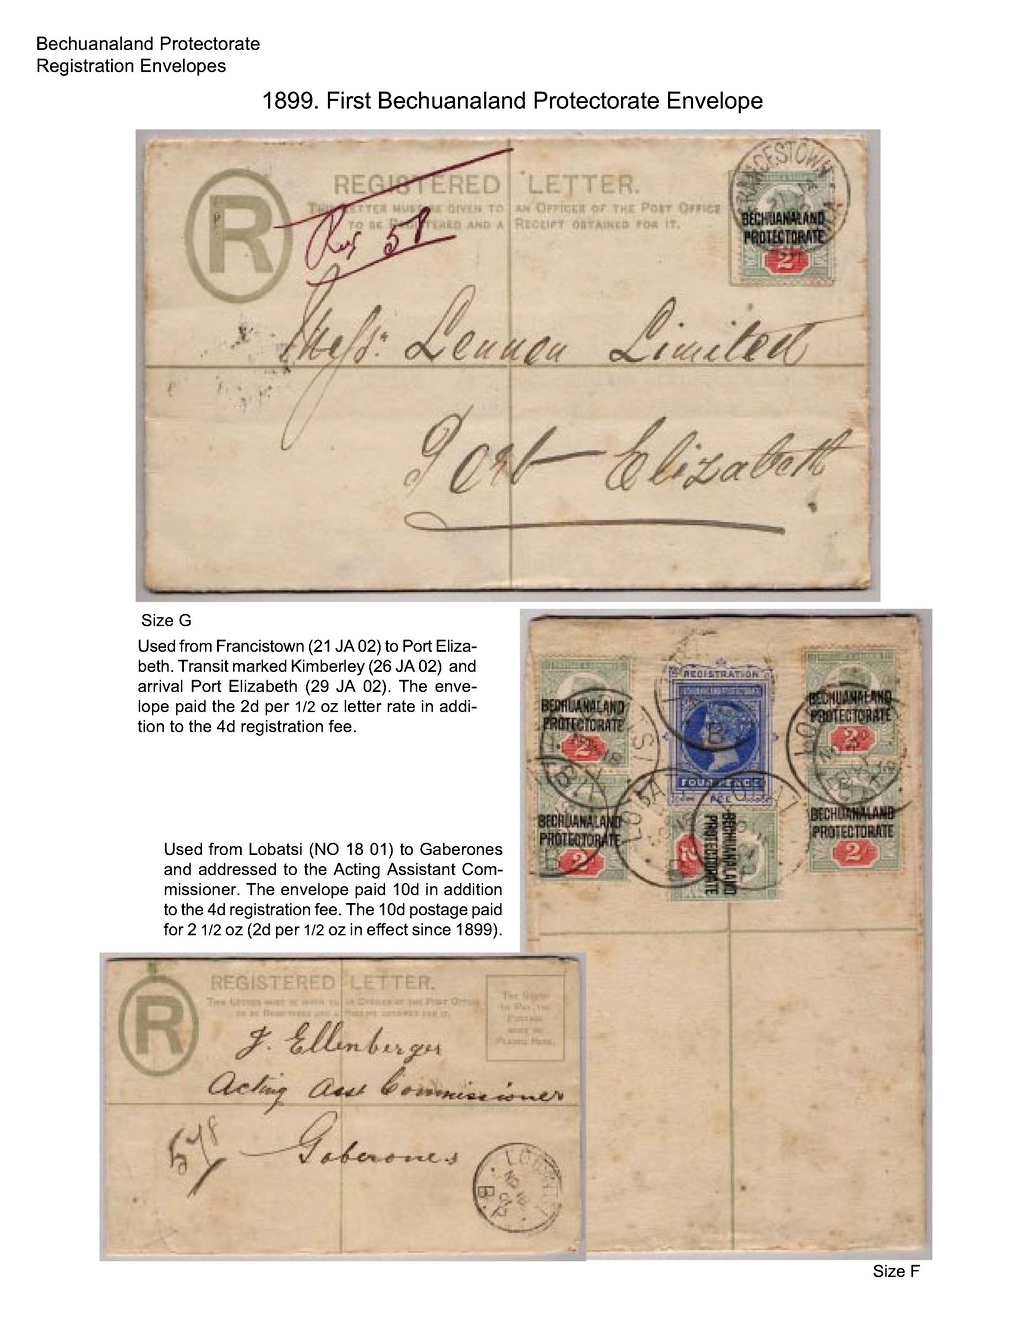 Bechuanaland Protectorate
Registration Envelopes
1899. First Bechuanaland Protectorate Envelope
R
REGISTERED LETTER.
THIS LETTER MUST BE GIVEN TO AN OFFICER OF THE POST OFFICE
TO BE REGISTERED AND A RECEIPT OBTAINED FOR IT.
FRANCESTOWN
BECHUANALAND
PROTECTORATE
2
Reg 58
Messrs. Lennon Limited
Port Elizabeth
Size G
Used from Francistown (21 JA 02) to Port Eliza-
beth. Transit marked Kimberley (26 JA 02) and
arrival Port Elizabeth (29 JA 02). The enve-
lope paid the 2d per 1/2 oz letter rate in addi-
tion to the 4d registration fee.
REGISTRATION
BECHUANALAND PROTECTORATE
FOUR PENCE
FEE
BECHUANALAND
PROTECTORATE
2
BECHUANALAND
PROTECTORATE
2
BECHUANALAND
PROTECTORATE
2
BECHUANALAND
PROTECTORATE
2
BECHUANALAND
PROTECTORATE
2
Used from Lobatsi (NO 18 01) to Gaberones
and addressed to the Acting Assistant Com-
missioner. The envelope paid 10d in addition
to the 4d registration fee. The 10d postage paid
for 2 1/2 oz (2d per 1/2 oz in effect since 1899).
R
REGISTERED LETTER.
THIS LETTER MUST BE GIVEN TO AN OFFICER OF THE POST OFFICE
TO BE REGISTERED AND A RECEIPT OBTAINED FOR IT.
The Stamp
to Pay the
Postage
must be
Placed Here.
J. Ellenberger
Acting Asst Commissioner
Gaberones
LOBATSI
NO 18
01
B.P.
Size F